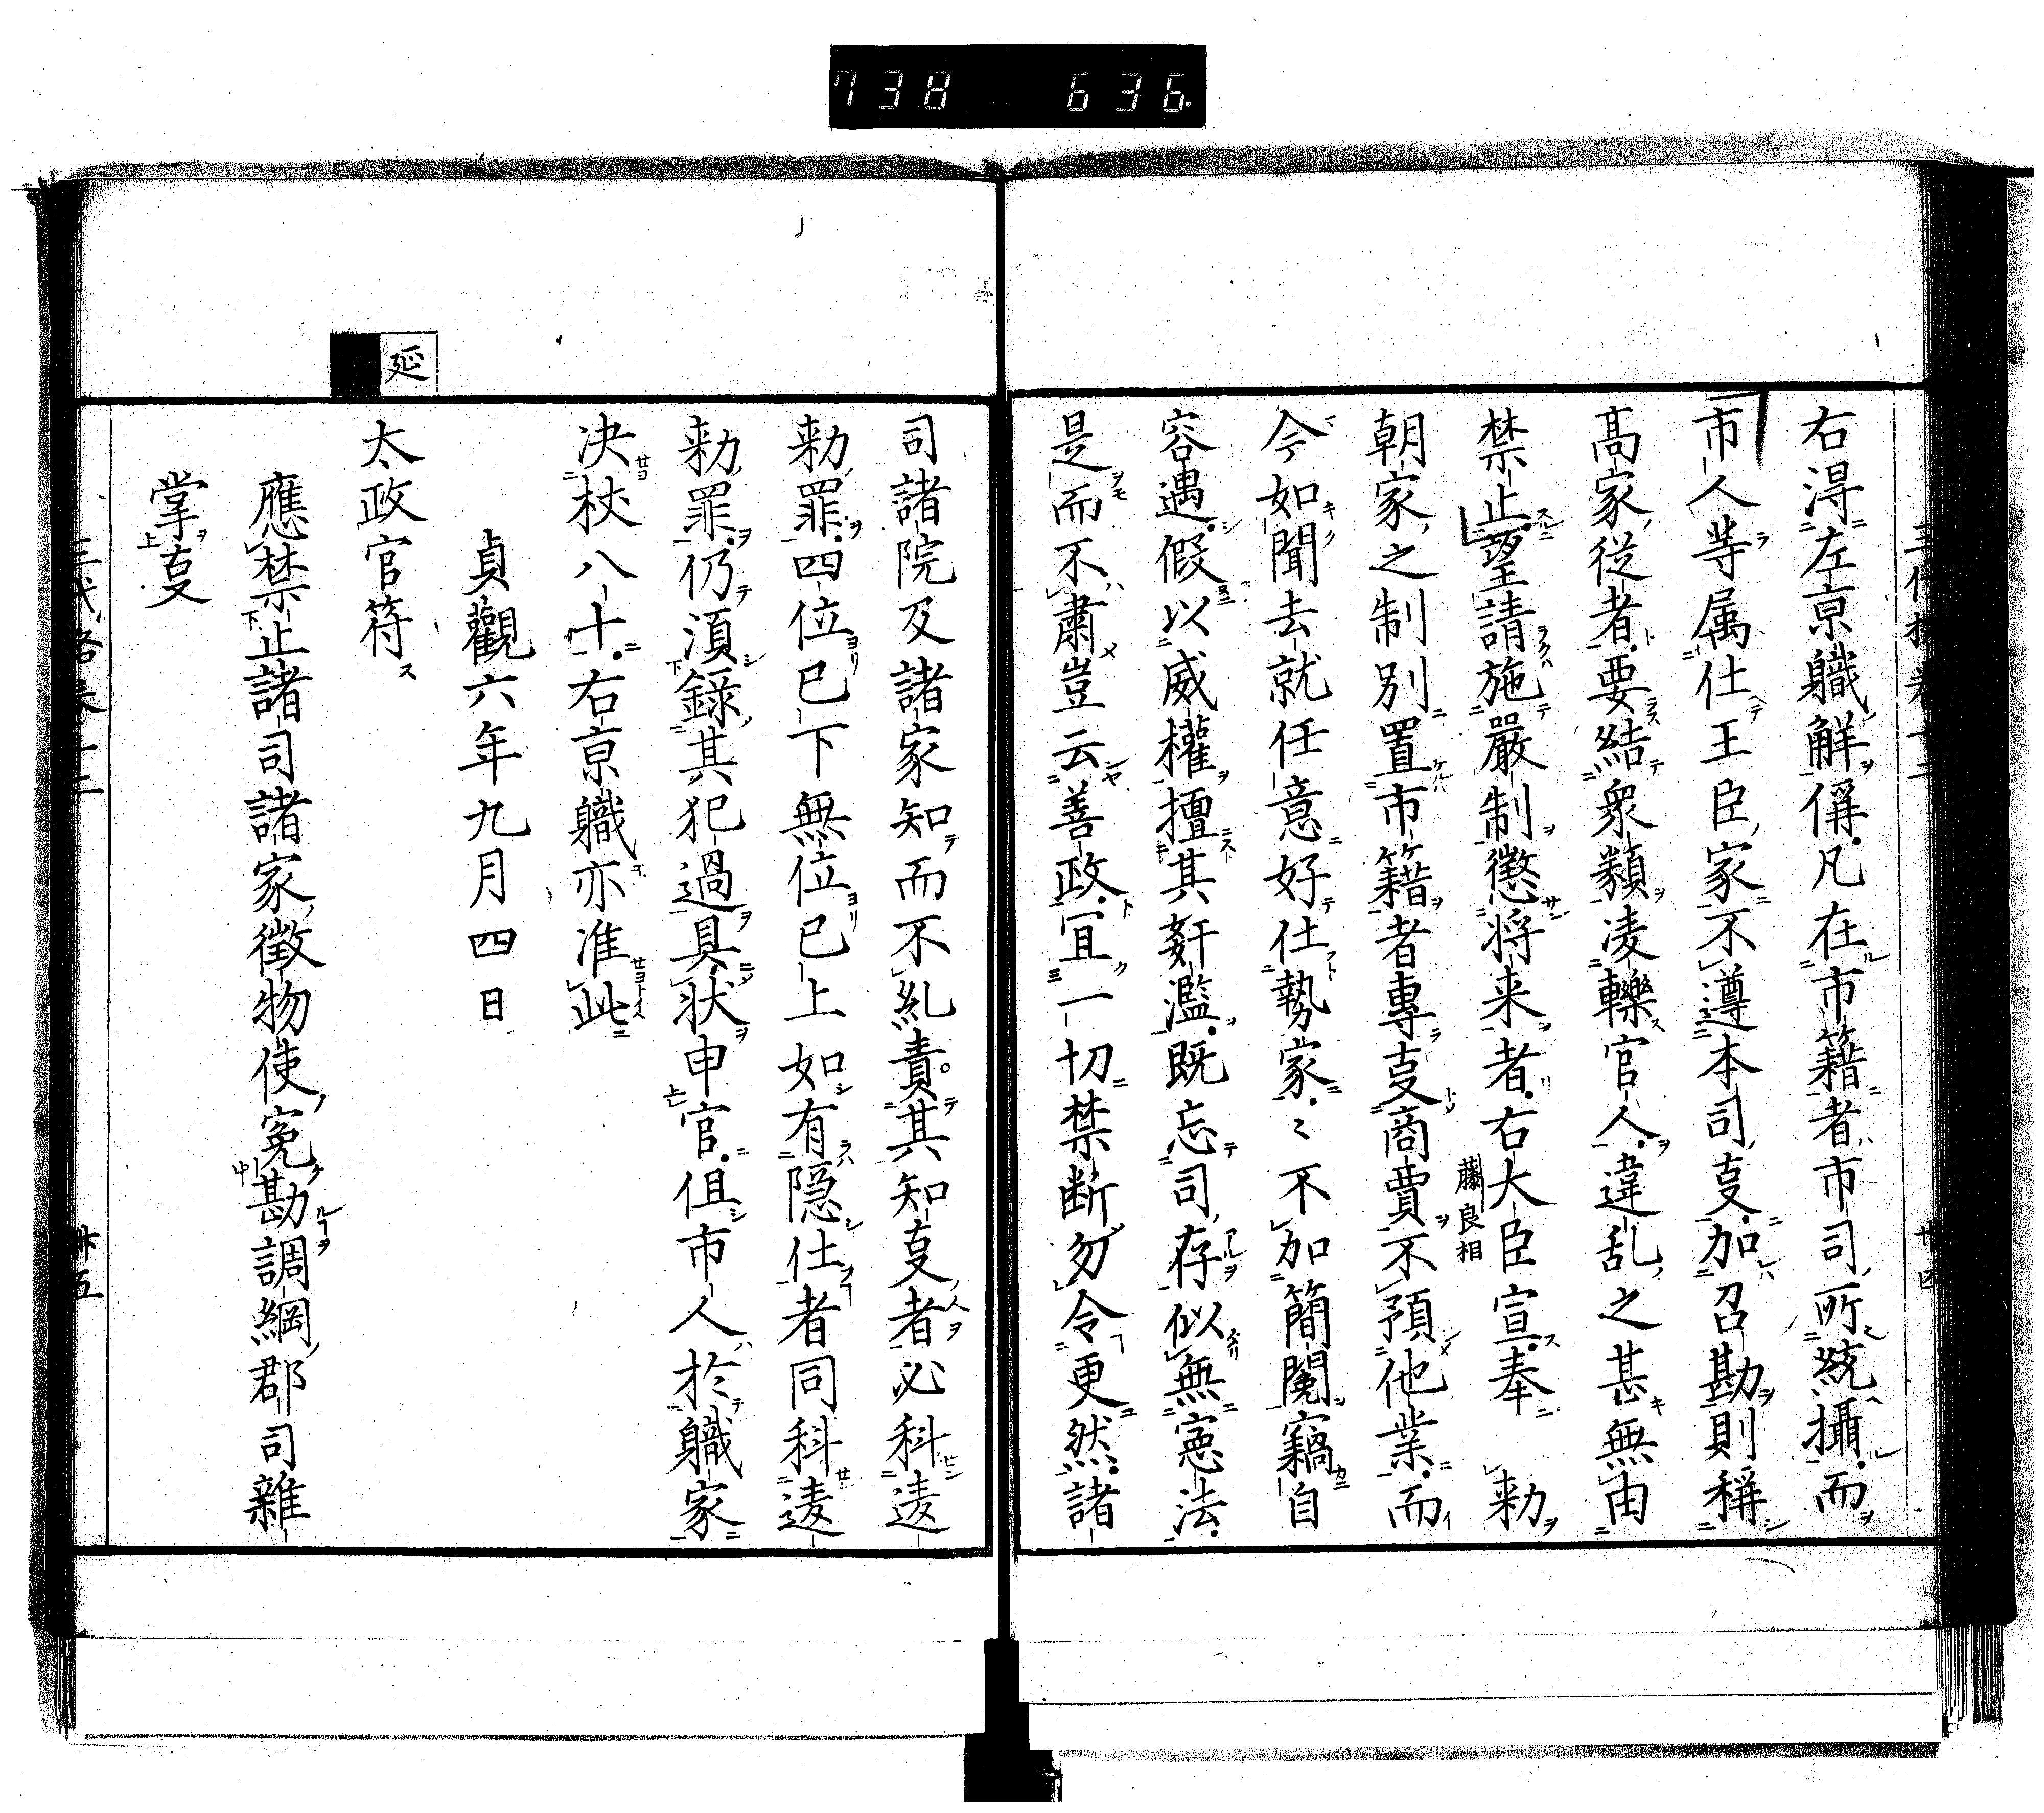 738 636
右得左京職解偁凡在市籍者市司所統攝而
市人等属仕王臣家不遵本司事加召勘則稱
高家従者要結衆類凌轢官人違乱之甚無由
禁止望請施嚴制懲将来者右大臣宣奉 勅
藤良相
朝家之制別置市籍者專事商賈不預他業而
今如聞去就任意好仕勢家〻不加簡閲竊自
容遇假以威權擅其姧濫既忘司存似無憲法
是而不肅豈云善政宜一切禁断勿令更然諸
司諸院及諸家知而不糺責其知事者必科違
勅罪四位已下無位已上如有隠仕者同科違
勅罪仍湏録其犯過具状申官但市人於職家
决杖八十右京職亦准此
貞觀六年九月四日
延
太政官符
應禁止諸司諸家徴物使寃勘調綱郡司雜
掌事